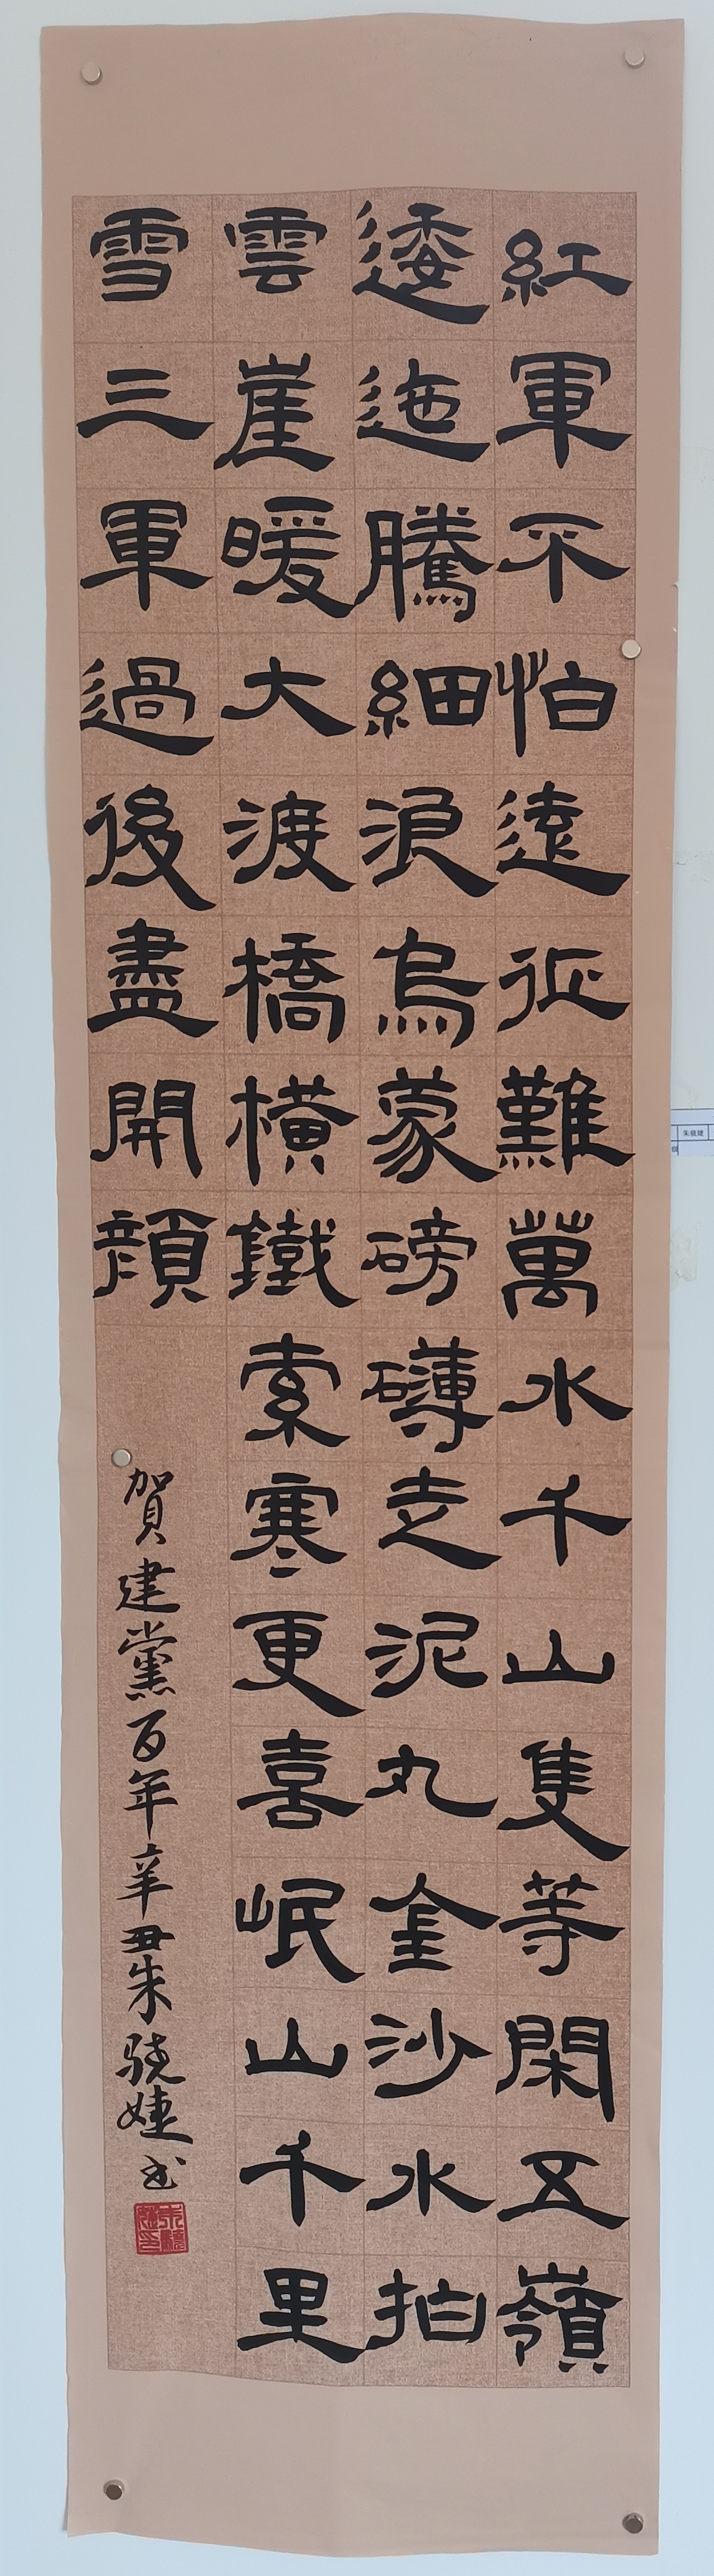 紅軍不怕遠征難萬水千山隻等閑五嶺
逶迤騰細浪烏蒙磅礴走泥丸金沙水拍
雲崖暖大渡橋橫鐵索寒更喜岷山千里
雪三軍過後盡開顔
賀建黨百年辛丑朱骁婕书